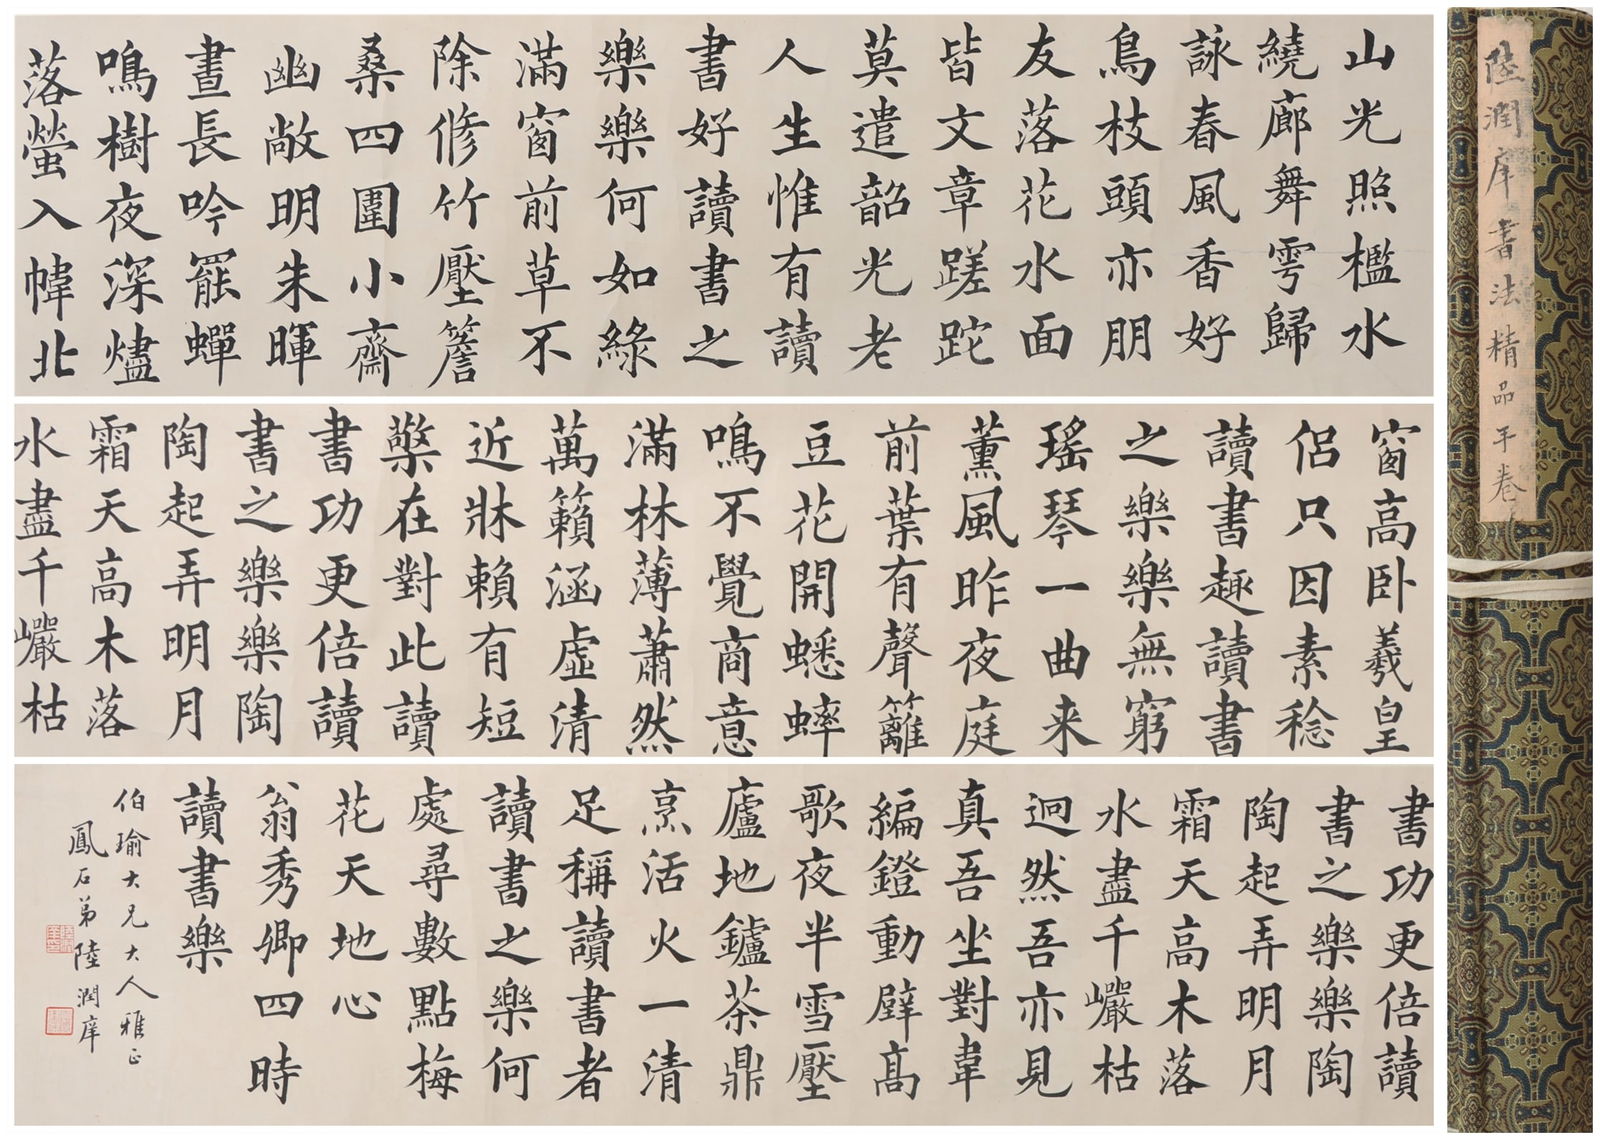 山光照檻水
繞廊舞雩歸
詠春風香好
鳥枝頭亦朋
友落花水面
皆文章蹉跎
莫遣韶光老
人生惟有讀
書好讀書之
樂樂何如綠
滿窗前草不
除修竹壓簷
桑四圍小齋
幽敞明朱暉
晝長吟罷蟬
鳴樹夜深燼
落螢入幃北
窗高卧羲皇
侶只因素稔
讀書趣讀書
之樂樂無窮
瑤琴一曲来
薰風昨夜庭
前葉有聲籬
豆花開蟋蟀
鳴不覺商意
滿林薄蕭然
萬籟涵虛清
近牀賴有短
檠在對此讀
書功更倍讀
書之樂樂陶
陶起弄明月
霜天高木落
水盡千巖枯
書功更倍讀
書之樂樂陶
陶起弄明月
霜天高木落
水盡千巖枯
迥然吾亦見
真吾坐對韋
編鐙動壁高
歌夜半雪壓
廬地鑪茶鼎
烹活火一清
足稱讀書者
讀書之樂何
處尋數點梅
花天地心
翁秀卿四時
讀書樂
伯瑜大兄大人雅正
鳳石弟陸潤庠
陸潤庠書法精品手卷